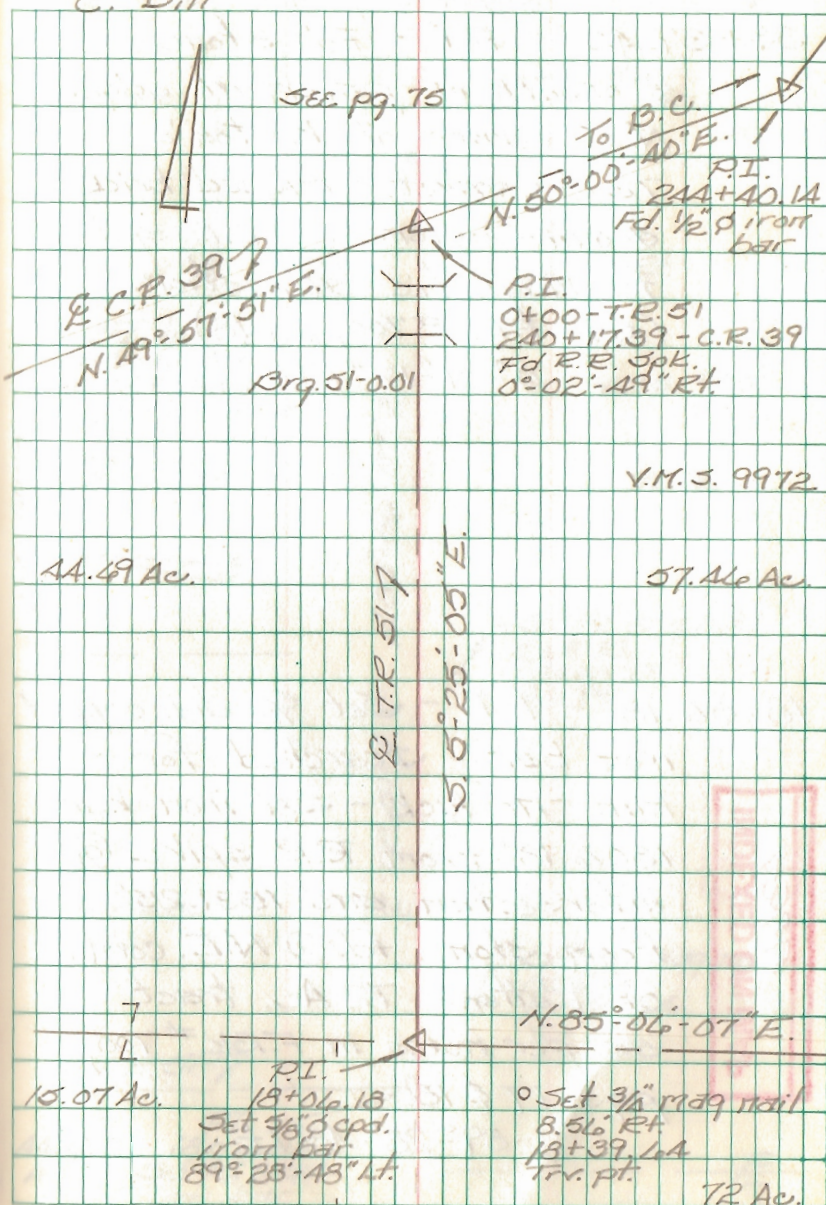 See pg. 75
To B.C.
N. 50°-00'-40" E.
P.I.
244+40.14
Fd. 1/2" ø iron
bar
℄ C.R. 39
N. 49°-57'-51" E.
P.I.
0+00 - T.R. 51
240+17.39 - C.R. 39
Fd R.R. Spk.
0°-02'-49" Rt.
Brg. 51-0.01
V.M.S. 9972
44.69 Ac.
57.46 Ac.
℄ T.R. 51
S. 5°-25'-05" E.
N. 85°-06'-07" E.
P.I.
18+06.18
Set 5/8" ø cpd.
iron bar
89°-28'-48" Lt.
15.07 Ac.
Set mag nail
8.56' Rt
18+39.64
Trv. pt.
72 Ac.